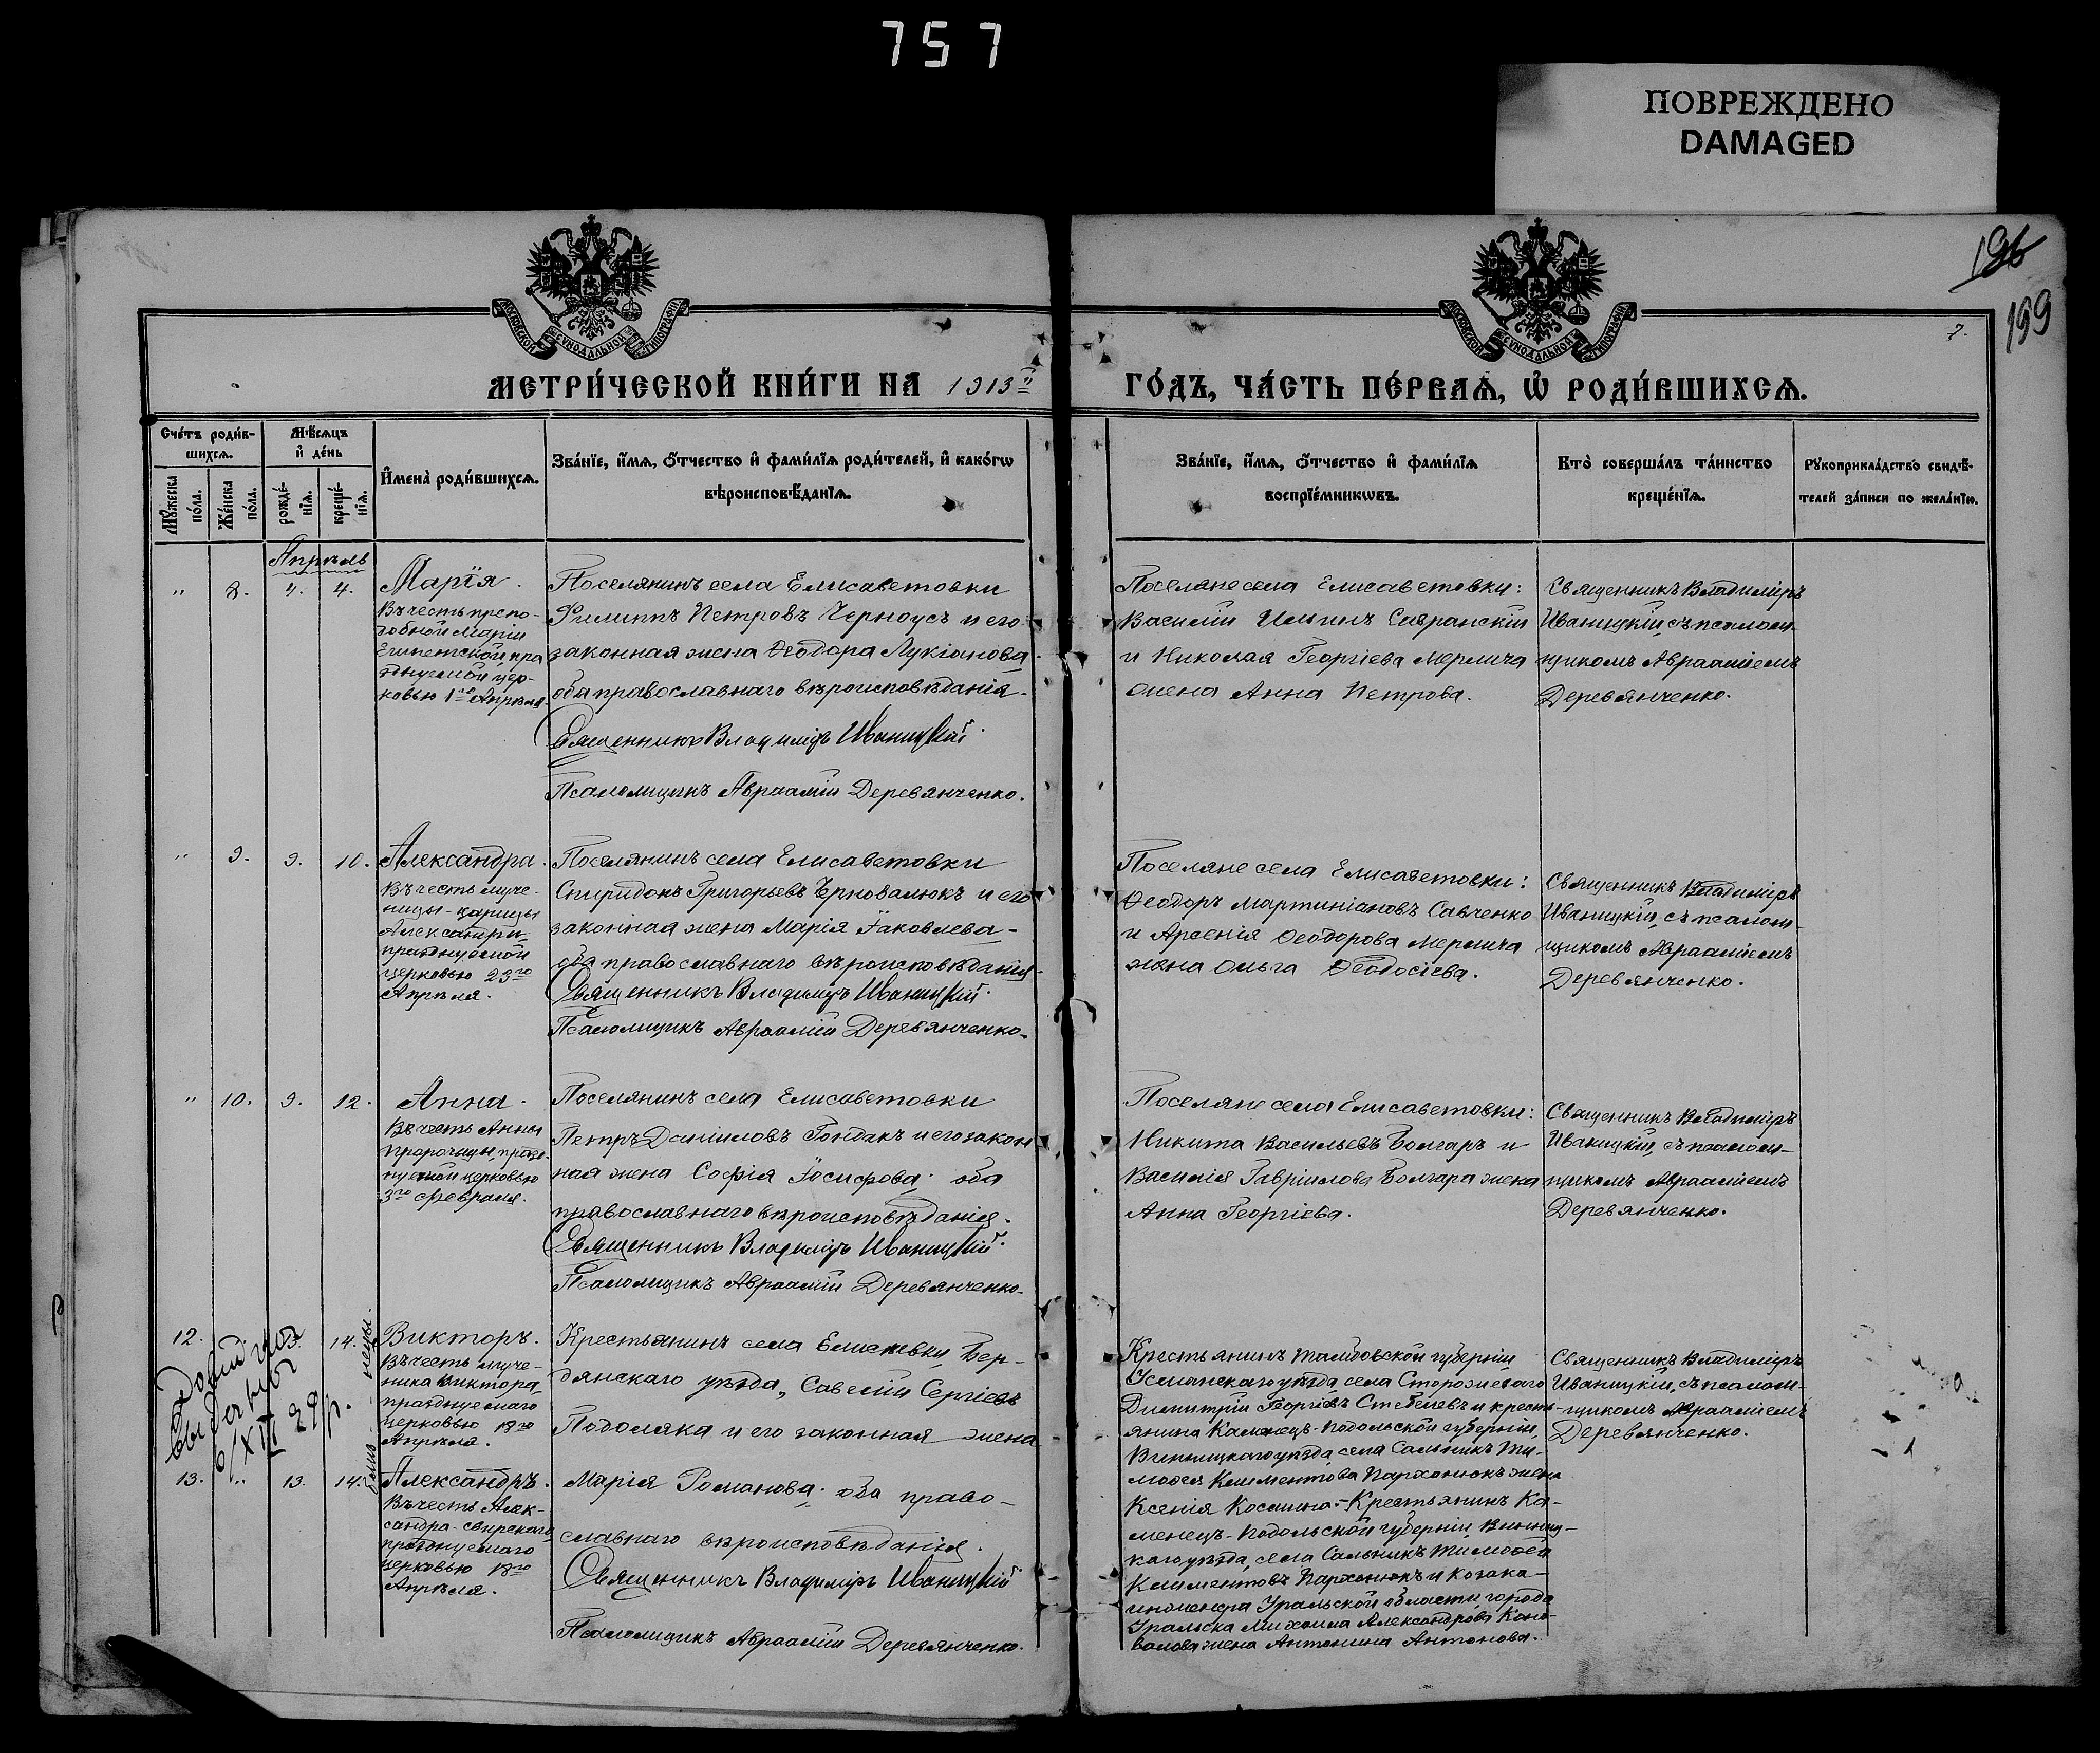 757
ПОВРЕЖДЕНО
DAMAGED
196
199
7.
МОСКОВСКОЙ СУНОДАЛЬНОЙ ТИПОГРАФІИ
МОСКОВСКОЙ СУНОДАЛЬНОЙ ТИПОГРАФІИ
МЕТРИ́ЧЕСКОЙ КНИ́ГИ НА 1913й ГО́ДЪ, ЧА́СТЬ ПЕ́РВАѦ, Ѡ РОДИ́ВШИХСѦ.
Сче́тъ роди́в-
шихсѧ.
Мѣ́сѧцъ
и҆ де́нь
Мꙋ́жеска
по́ла.
Же́нска
по́ла.
рожде́-
нїѧ.
креще́-
нїѧ.
И҆мена̀ роди́вшихсѧ.
Зва́нїе, и҆́мѧ, ѻ҆́тчество и҆ фами́лїѧ роди́телей, и҆ како́гѡ
вѣроисповѣ́данїѧ.
Зва́нїе, и҆́мѧ, ѻ҆́тчество и҆ фами́лїѧ
воспрїе́мникѡвъ.
Кто̀ соверша́лъ та́инство
креще́нїѧ.
Рꙋкоприкла́дство свидѣ́-
телей за́писи по жела́нїю.
Апрѣль
" 8. 4. 4.
Марія.
Въ честь препо-
добной Маріи
Египетской, пра
зднуемой цер-
ковью 1го Апрѣля.
Поселянинъ села Елисаветовки
Филиппъ Петровъ Черноусъ и его
законная жена Ѳеодора Лукіанова
оба православнаго вѣроисповѣданія.
Священникъ Владиміръ Иваницкій.
Псаломщикъ Авраамій Деревянченко.
Поселяне села Елисаветовки:
Василій Ильинъ Савранскій
и Николая Георгіева Мерлича
жена Анна Петрова.
Священникъ Владиміръ
Иваницкій, съ псалом-
щикомъ Авраамiемъ
Деревянченко.
" 9. 9. 10.
Александра.
Въ честь муче-
ницы-царицы
Александры,
празднуемой
церковью 23го
Апрѣля.
Поселянинъ села Елисаветовки
Спиридонъ Григорьевъ и его
законная жена Марія Іаковлева-
оба православнаго вѣроисповѣданія.
Священникъ Владиміръ Иваницкій.
Псаломщикъ Авраамій Деревянченко.
Поселяне села Елисаветовки:
Ѳеодоръ Мартиніановъ Савченко
и Арсенія Ѳеодорова Мерлича
жена Ольга Ѳеодосіева.
Священникъ Владиміръ
Иваницкій, съ псалом-
щикомъ Авраамiемъ
Деревянченко.
" 10. 9. 12.
Анна.
Въ честь Анны
пророчицы, празд-
нуемой церковью
3го Февраля.
Поселянинъ села Елисаветовки
Петръ Даніиловъ Гондакъ и его закон
ная жена Софія Іосифова; оба
православнаго вѣроисповѣданія.
Священникъ Владиміръ Иваницкій.
Псаломщикъ Авраамій Деревянченко.
Поселяне села Елисаветовки:
Никита Васильевъ Болгаръ и
Василія Гавріилова Болгара жена
Анна Георгіева.
Священникъ Владиміръ
Иваницкій, съ псалом-
щикомъ Авраамiемъ
Деревянченко.
12. 14.
6/XII 29 р.
Викторъ.
Въ честь муче-
ника Виктора,
празднуемаго
церковью 18го
Апрѣля.
13. " 13. 14.
Александръ.
Въ честь Алек-
сандра-свирскаго,
празднуемаго
церковью
Апрѣля.
Крестьянинъ села Бер-
дянскаго уѣзда, Савелій Сергіевъ
Подоляка и его законная жена
Марія Романова; оба право-
славнаго вѣроисповѣданія.
Священникъ Владиміръ Иваницкій
Псаломщикъ Авраамій Деревянченко.
Крестьянинъ Тамбовской губерніи
Усманскаго уѣзда села Сторожеваго
Димитрій Георгіевъ и кресть-
янина Каменецъ-Подольской губерніи,
Винницкаго уѣзда села Сальникъ Ти-
моѳея Климентова Пархонюкъ жена
Ксенія Космина. - Крестьянинъ Ка-
менецъ-Подольской губерніи, Винниц-
каго уѣзда, села Сальникъ Тимоѳей
Климентовъ Пархонюкъ и козака-
инженера Уральской области, города
Уральска Михаила Александрова Коно-
валова жена Антонина Антонова.
Священникъ Владиміръ
Иваницкій, съ псалом-
щикомъ Авраамiемъ
Деревянченко.